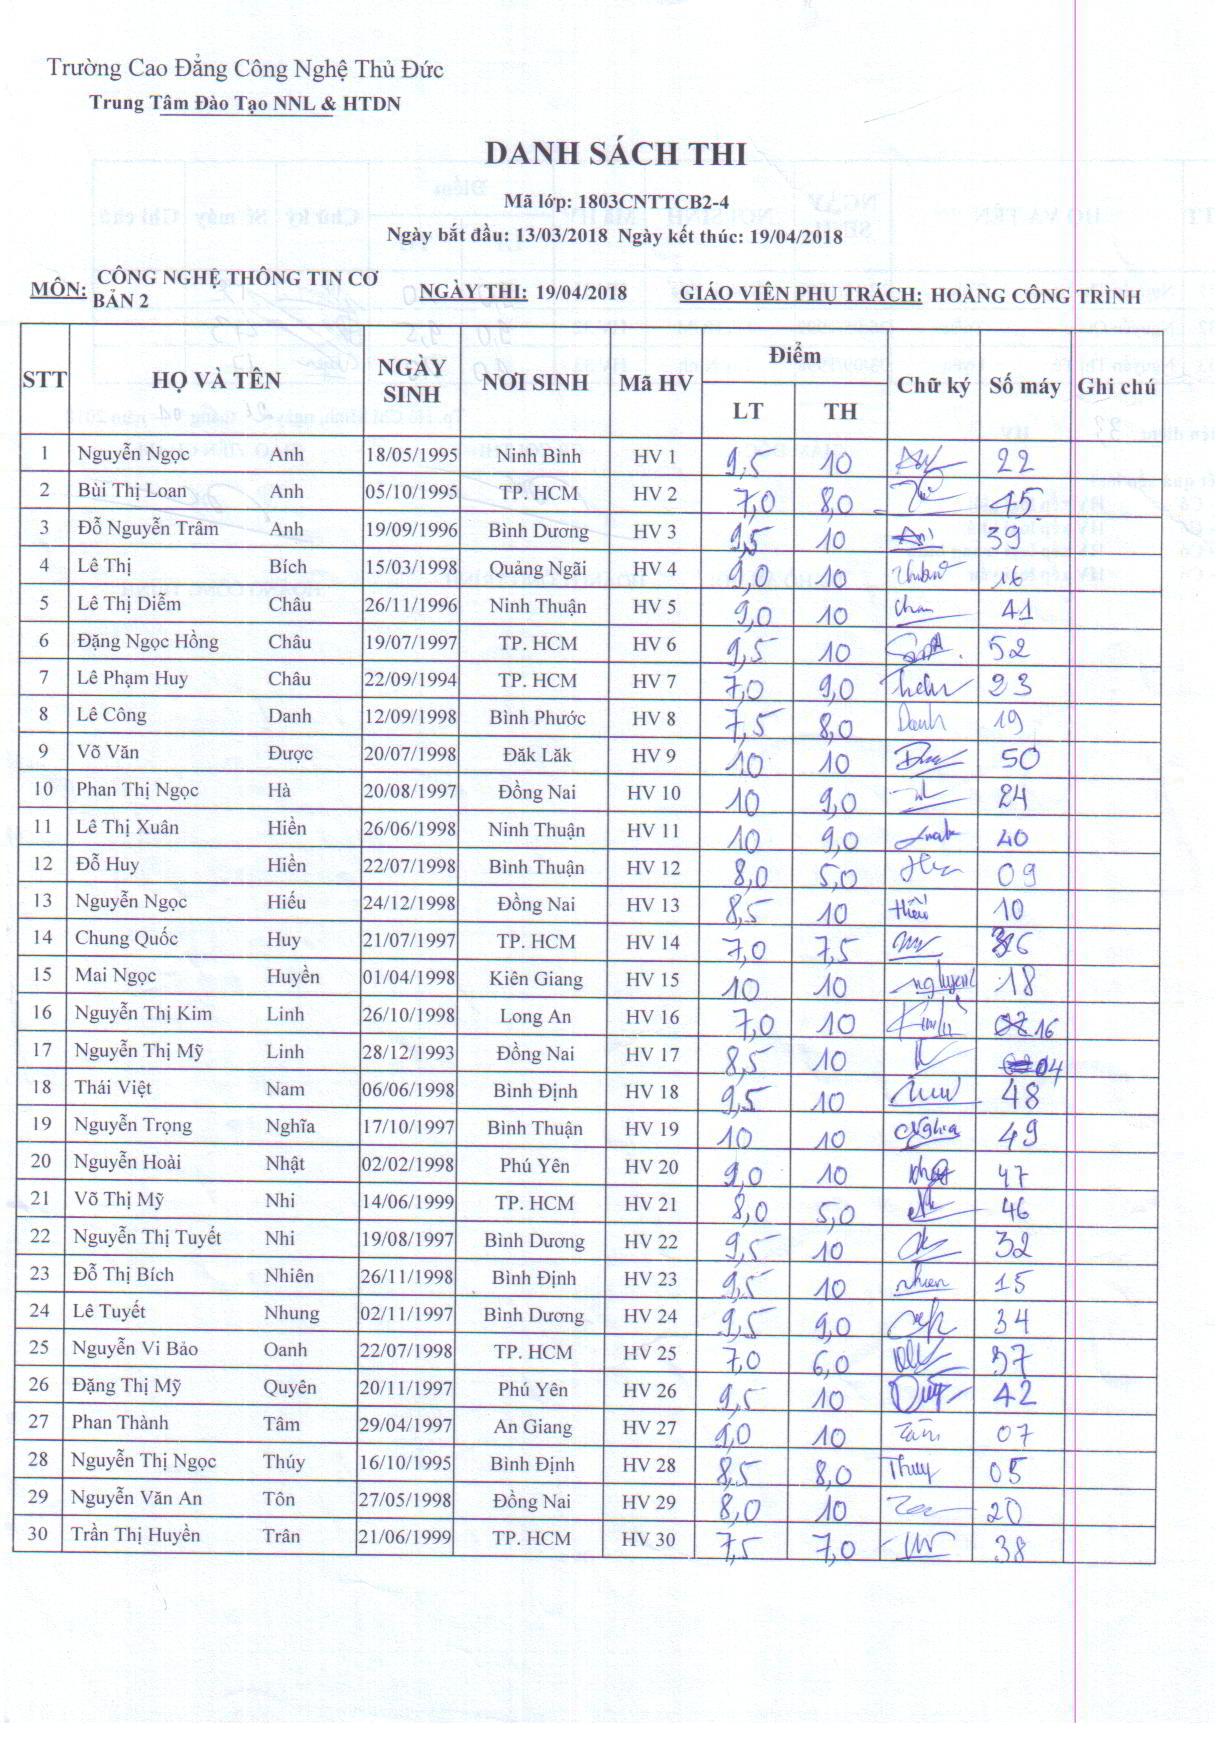 Trường Cao Đẳng Công Nghệ Thủ Đức
Trung Tâm Đào Tạo NNL & HTDN
DANH SÁCH THI
Mã lớp: 1803CNTTCB2-4
Ngày bắt đầu: 13/03/2018 Ngày kết thúc: 19/04/2018
MÔN: CÔNG NGHỆ THÔNG TIN CƠ BẢN 2 NGÀY THI: 19/04/2018 GIÁO VIÊN PHỤ TRÁCH: HOÀNG CÔNG TRÌNH
STT HỌ VÀ TÊN NGÀY SINH NƠI SINH Mã HV Điểm Chữ ký Số máy Ghi chú
LT TH
1 Nguyễn Ngọc Anh 18/05/1995 Ninh Bình HV 1 9,5 10 22
2 Bùi Thị Loan Anh 05/10/1995 TP. HCM HV 2 7,0 8,0 45
3 Đỗ Nguyễn Trâm Anh 19/09/1996 Bình Dương HV 3 9,5 10 39
4 Lê Thị Bích 15/03/1998 Quảng Ngãi HV 4 9,0 10 16
5 Lê Thị Diễm Châu 26/11/1996 Ninh Thuận HV 5 9,0 10 41
6 Đặng Ngọc Hồng Châu 19/07/1997 TP. HCM HV 6 9,5 10 52
7 Lê Phạm Huy Châu 22/09/1994 TP. HCM HV 7 7,0 9,0 23
8 Lê Công Danh 12/09/1998 Bình Phước HV 8 7,5 8,0 Danh 19
9 Võ Văn Được 20/07/1998 Đăk Lăk HV 9 10 10 50
10 Phan Thị Ngọc Hà 20/08/1997 Đồng Nai HV 10 10 9,0 24
11 Lê Thị Xuân Hiền 26/06/1998 Ninh Thuận HV 11 10 9,0 40
12 Đỗ Huy Hiền 22/07/1998 Bình Thuận HV 12 8,0 5,0 09
13 Nguyễn Ngọc Hiếu 24/12/1998 Đồng Nai HV 13 8,5 10 10
14 Chung Quốc Huy 21/07/1997 TP. HCM HV 14 7,0 7,5
15 Mai Ngọc Huyền 01/04/1998 Kiên Giang HV 15 10 10 18
16 Nguyễn Thị Kim Linh 26/10/1998 Long An HV 16 7,0 10 16
17 Nguyễn Thị Mỹ Linh 28/12/1993 Đồng Nai HV 17 8,5 10 04
18 Thái Việt Nam 06/06/1998 Bình Định HV 18 9,5 10 48
19 Nguyễn Trọng Nghĩa 17/10/1997 Bình Thuận HV 19 10 10 Nghĩa 49
20 Nguyễn Hoài Nhật 02/02/1998 Phú Yên HV 20 9,0 10 47
21 Võ Thị Mỹ Nhi 14/06/1999 TP. HCM HV 21 8,0 5,0 46
22 Nguyễn Thị Tuyết Nhi 19/08/1997 Bình Dương HV 22 9,5 10 32
23 Đỗ Thị Bích Nhiên 26/11/1998 Bình Định HV 23 9,5 10 nhien 15
24 Lê Tuyết Nhung 02/11/1997 Bình Dương HV 24 9,5 9,0 34
25 Nguyễn Vi Bảo Oanh 22/07/1998 TP. HCM HV 25 7,0 6,0 37
26 Đặng Thị Mỹ Quyên 20/11/1997 Phú Yên HV 26 9,5 10 42
27 Phan Thành Tâm 29/04/1997 An Giang HV 27 9,0 10 Tâm 07
28 Nguyễn Thị Ngọc Thúy 16/10/1995 Bình Định HV 28 8,5 8,0 Thuy 05
29 Nguyễn Văn An Tôn 27/05/1998 Đồng Nai HV 29 8,0 10 20
30 Trần Thị Huyền Trân 21/06/1999 TP. HCM HV 30 7,5 7,0 38